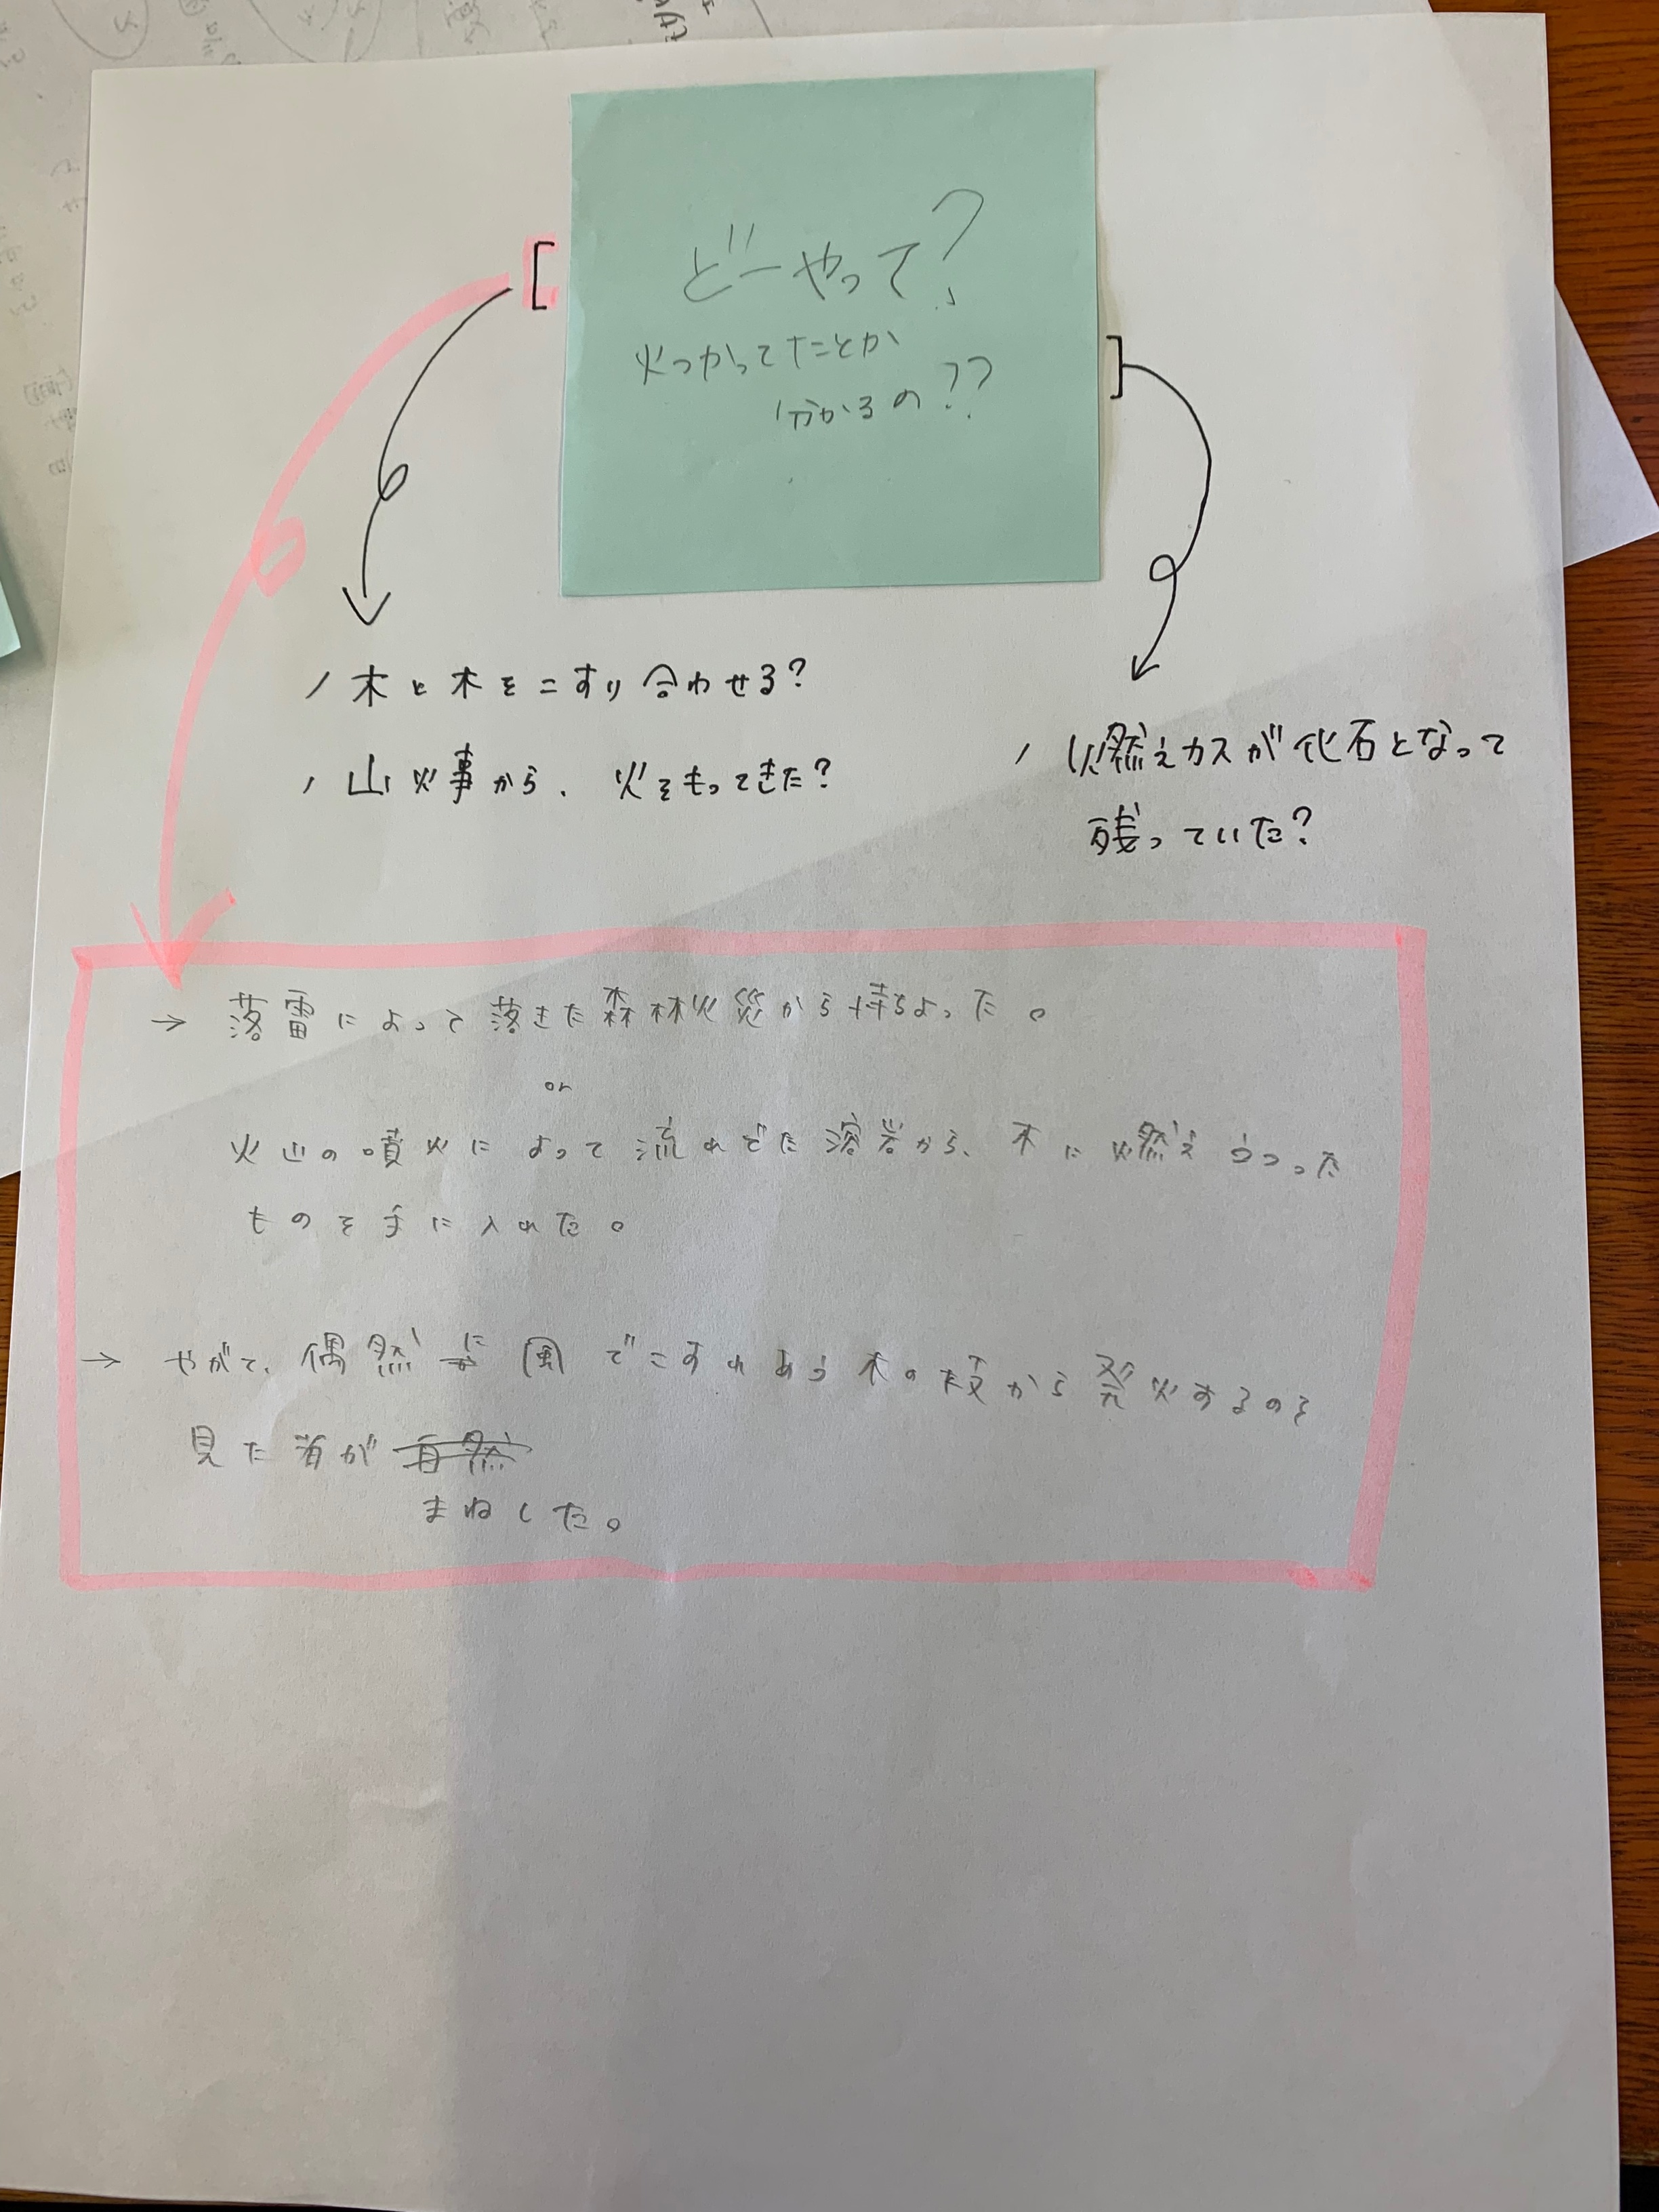 どーやって?
火つかってたことか
分かるの??
木と木をこすり合わせる?
山火事から、火をもってきた?
燃えカスが化石となって
残っていた?
→ 落雷によって落きた森林火災から持ちよった。
or
火山の噴火によって流れでた溶岩から、木に燃えうつった
ものを手に入れた。
→ やがて、偶然に風でこすれあう木の枝から発火するのを
見た者が
まねした。